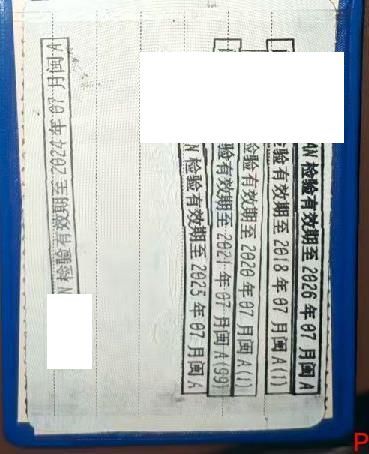 W 检验有效期至 2026 年 07 月闽 A
验有效期至 2018 年 07 月闽 A(1)
检验有效期至 2020 年 07 月闽 A(1)
验有效期至 2021 年 07 月闽 A(99)
检验有效期至 2025 年 07 月闽 A
检验有效期至 2024 年 07 月闽 A
P